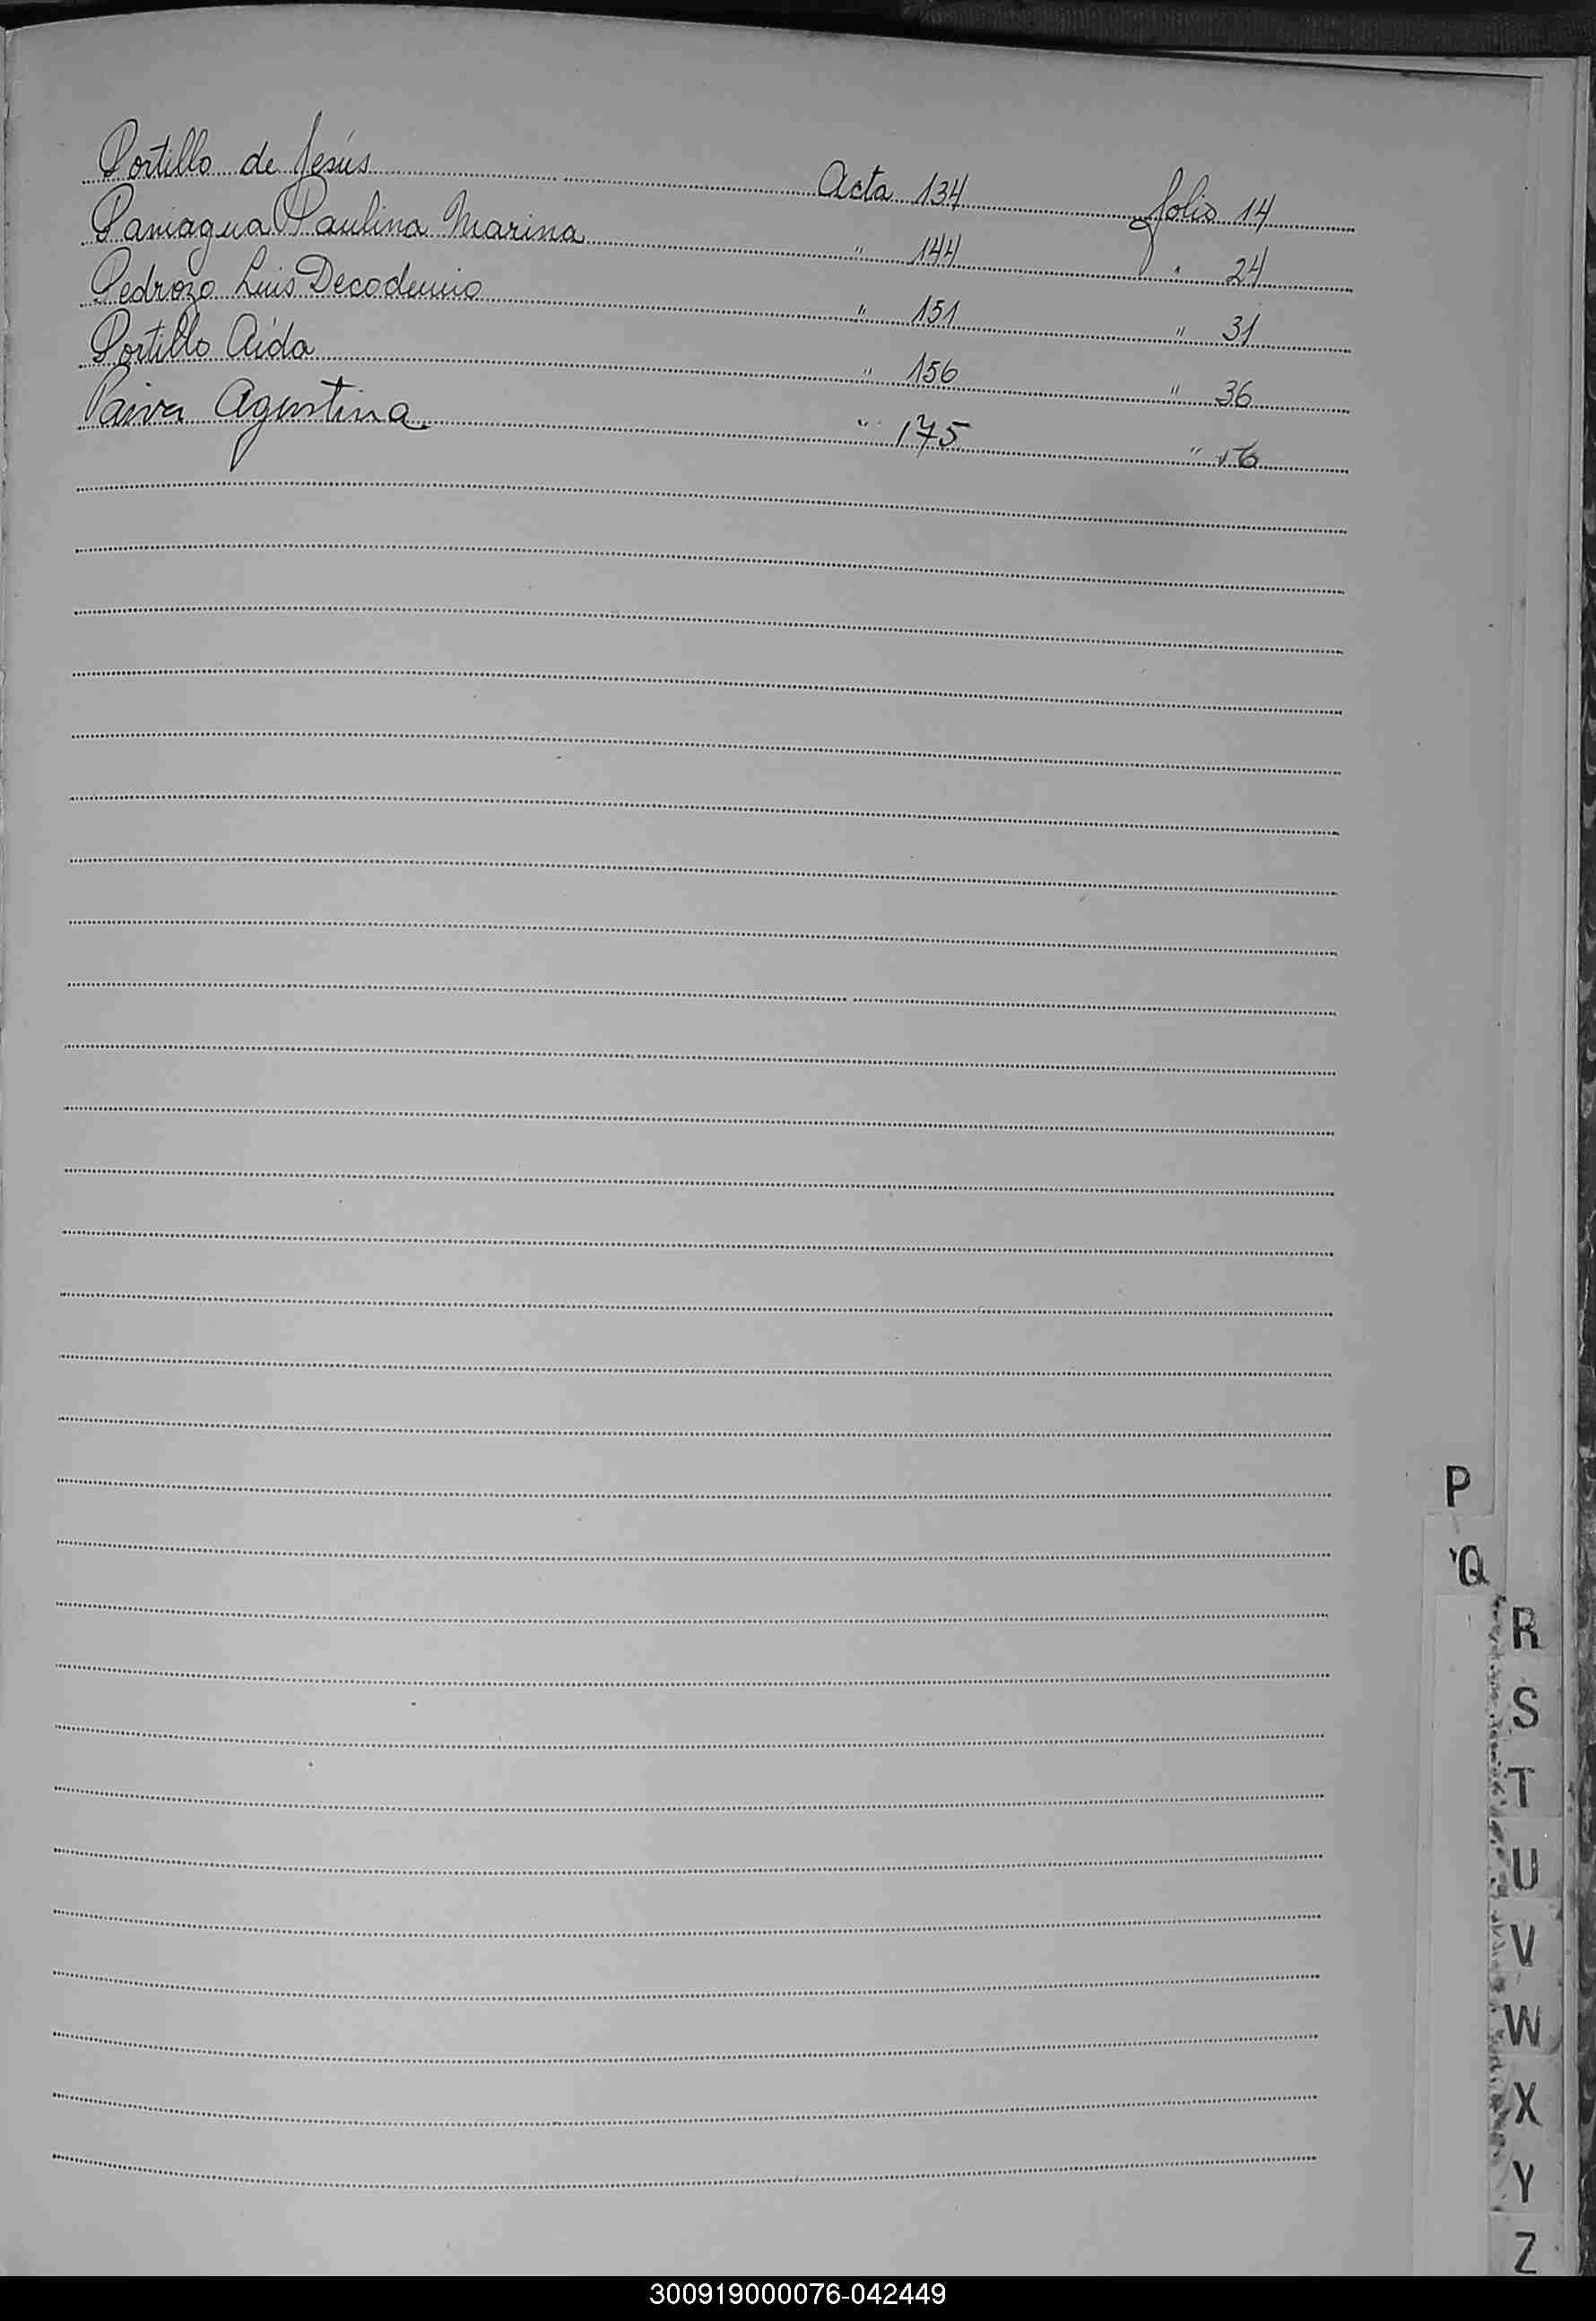 Portillo de Jesús Acta 134 folio 14
Paniagua Paulina Marina " 144 " 24
Pedrozo Luis Decodemio " 151 " 31
Portillo Aída " 156 " 36
Paiva Agustina " 175 "
P
Q
R
S
T
U
V
W
X
Y
Z
300919000076-042449